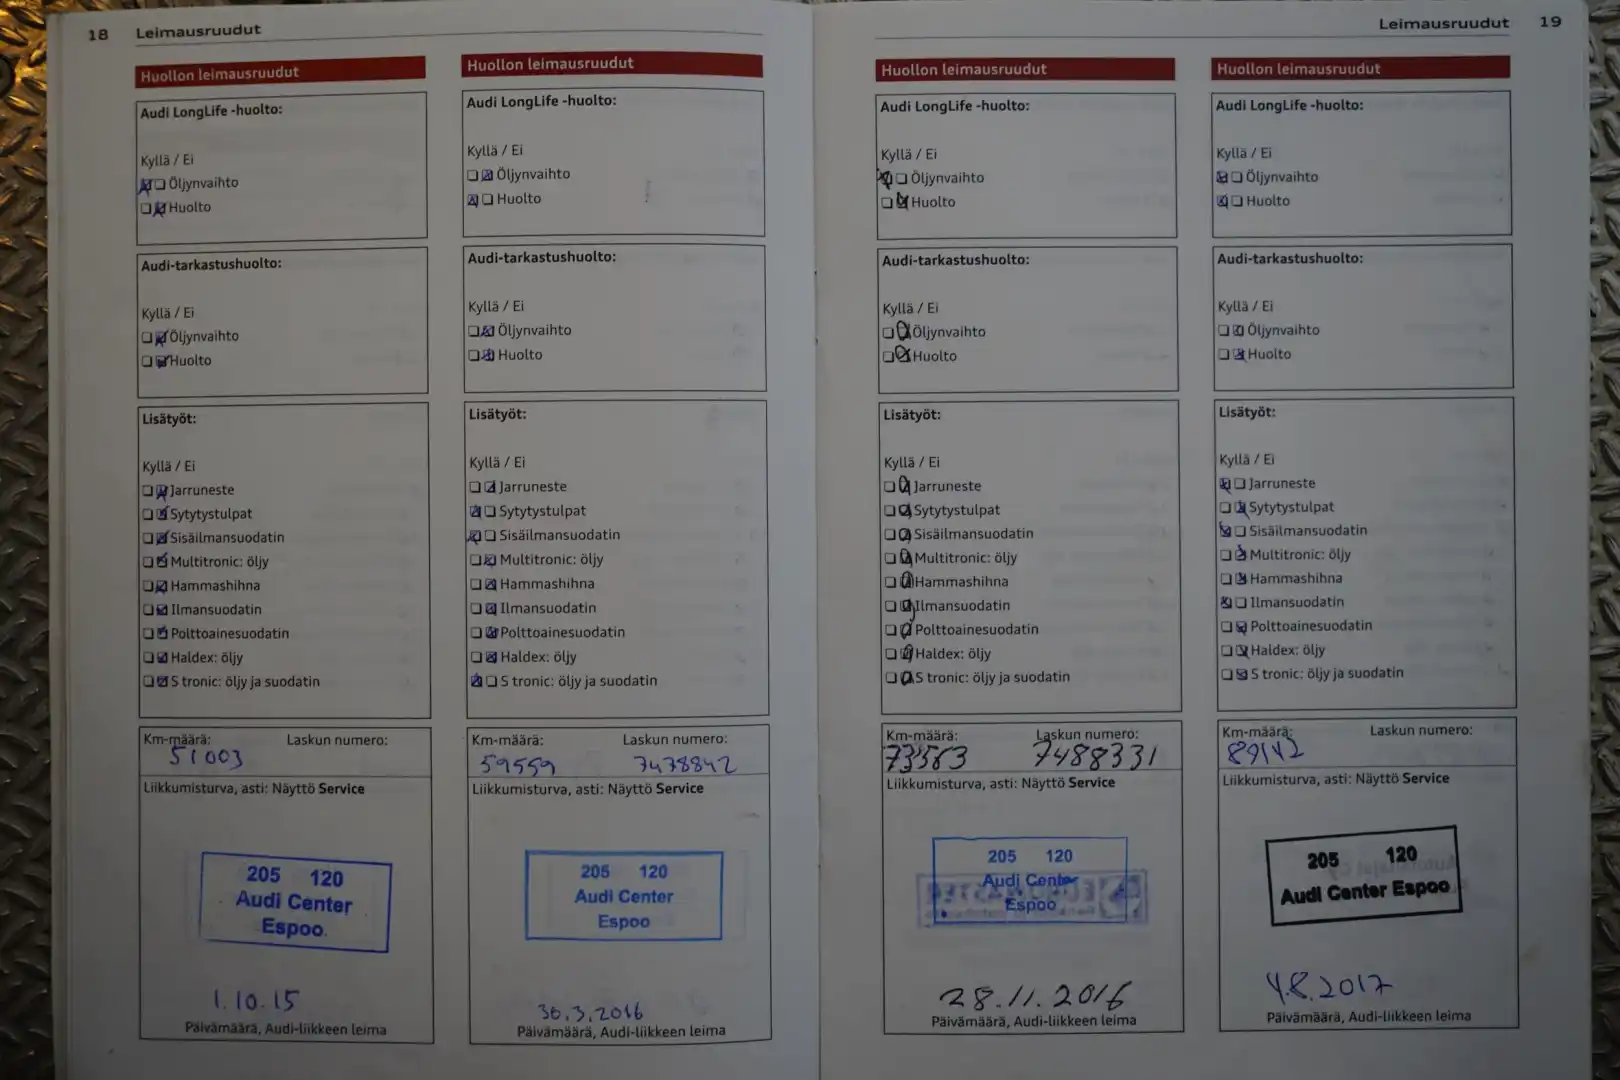 18 Leimausruudut
Huollon leimausruudut
Audi LongLife -huolto:
Kyllä / Ei
Öljynvaihto
Huolto
Audi-tarkastushuolto:
Kyllä / Ei
Öljynvaihto
Huolto
Lisätyöt:
Kyllä / Ei
Jarruneste
Sytytystulpat
Sisäilmansuodatin
Multitronic: öljy
Hammashihna
Ilmansuodatin
Polttoainesuodatin
Haldex: öljy
S tronic: öljy ja suodatin
Km-määrä: Laskun numero:
51003
Liikkumisturva, asti: Näyttö Service
205 120
Audi Center
Espoo
1.10.15
Päivämäärä, Audi-liikkeen leima
Huollon leimausruudut
Audi LongLife -huolto:
Kyllä / Ei
Öljynvaihto
Huolto
Audi-tarkastushuolto:
Kyllä / Ei
Öljynvaihto
Huolto
Lisätyöt:
Kyllä / Ei
Jarruneste
Sytytystulpat
Sisäilmansuodatin
Multitronic: öljy
Hammashihna
Ilmansuodatin
Polttoainesuodatin
Haldex: öljy
S tronic: öljy ja suodatin
Km-määrä: Laskun numero:
59559 7478842
Liikkumisturva, asti: Näyttö Service
205 120
Audi Center
Espoo
30.3.2016
Päivämäärä, Audi-liikkeen leima
Leimausruudut 19
Huollon leimausruudut
Audi LongLife -huolto:
Kyllä / Ei
Öljynvaihto
Huolto
Audi-tarkastushuolto:
Kyllä / Ei
Öljynvaihto
Huolto
Lisätyöt:
Kyllä / Ei
Jarruneste
Sytytystulpat
Sisäilmansuodatin
Multitronic: öljy
Hammashihna
Ilmansuodatin
Polttoainesuodatin
Haldex: öljy
S tronic: öljy ja suodatin
Km-määrä: Laskun numero:
73563 7488331
Liikkumisturva, asti: Näyttö Service
205 120
Audi Center
Espoo
28.11.2016
Päivämäärä, Audi-liikkeen leima
Huollon leimausruudut
Audi LongLife -huolto:
Kyllä / Ei
Öljynvaihto
Huolto
Audi-tarkastushuolto:
Kyllä / Ei
Öljynvaihto
Huolto
Lisätyöt:
Kyllä / Ei
Jarruneste
Sytytystulpat
Sisäilmansuodatin
Multitronic: öljy
Hammashihna
Ilmansuodatin
Polttoainesuodatin
Haldex: öljy
S tronic: öljy ja suodatin
Km-määrä: Laskun numero:
89142
Liikkumisturva, asti: Näyttö Service
205 120
Audi Center Espoo
4.8.2017
Päivämäärä, Audi-liikkeen leima